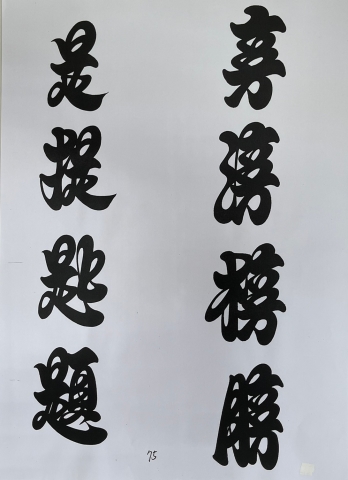 旁滂榜膀
是提匙題
75